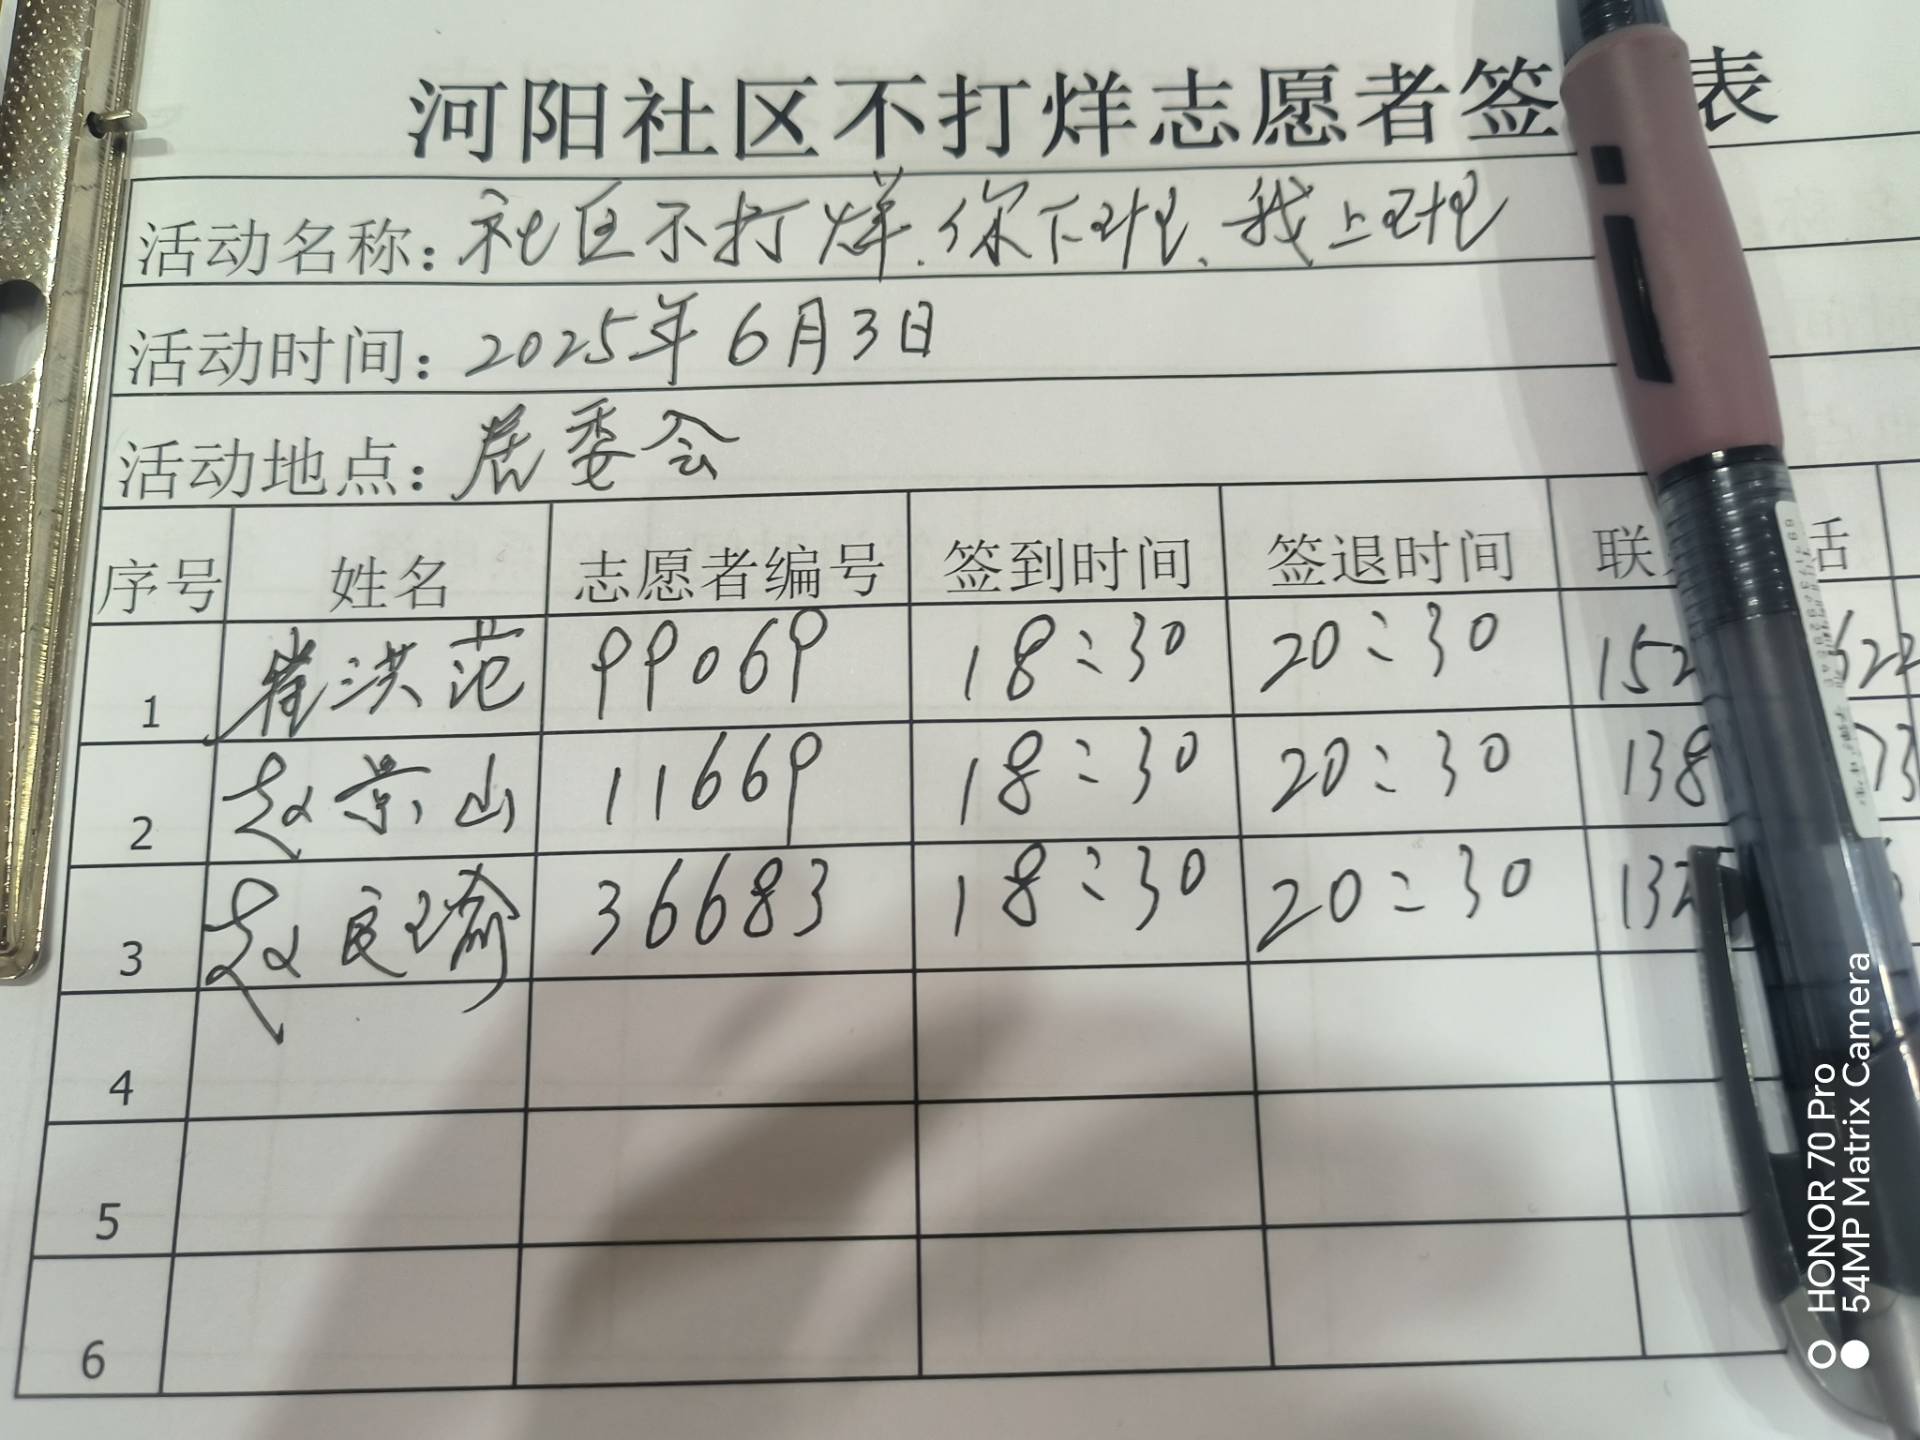 河阳社区不打烊志愿者签 表
活动名称：社区不打烊.你下班、我上班
活动时间：2025年6月3日
活动地点：居委会
序号 姓名 志愿者编号 签到时间 签退时间 联 话
1 崔洪范 99069 18:30 20:30 152 622
2 赵景山 11669 18:30 20:30 138 73
3 赵良瑜 36683 18:30 20:30 132
4
5
6
HONOR 70 Pro
54MP Matrix Camera